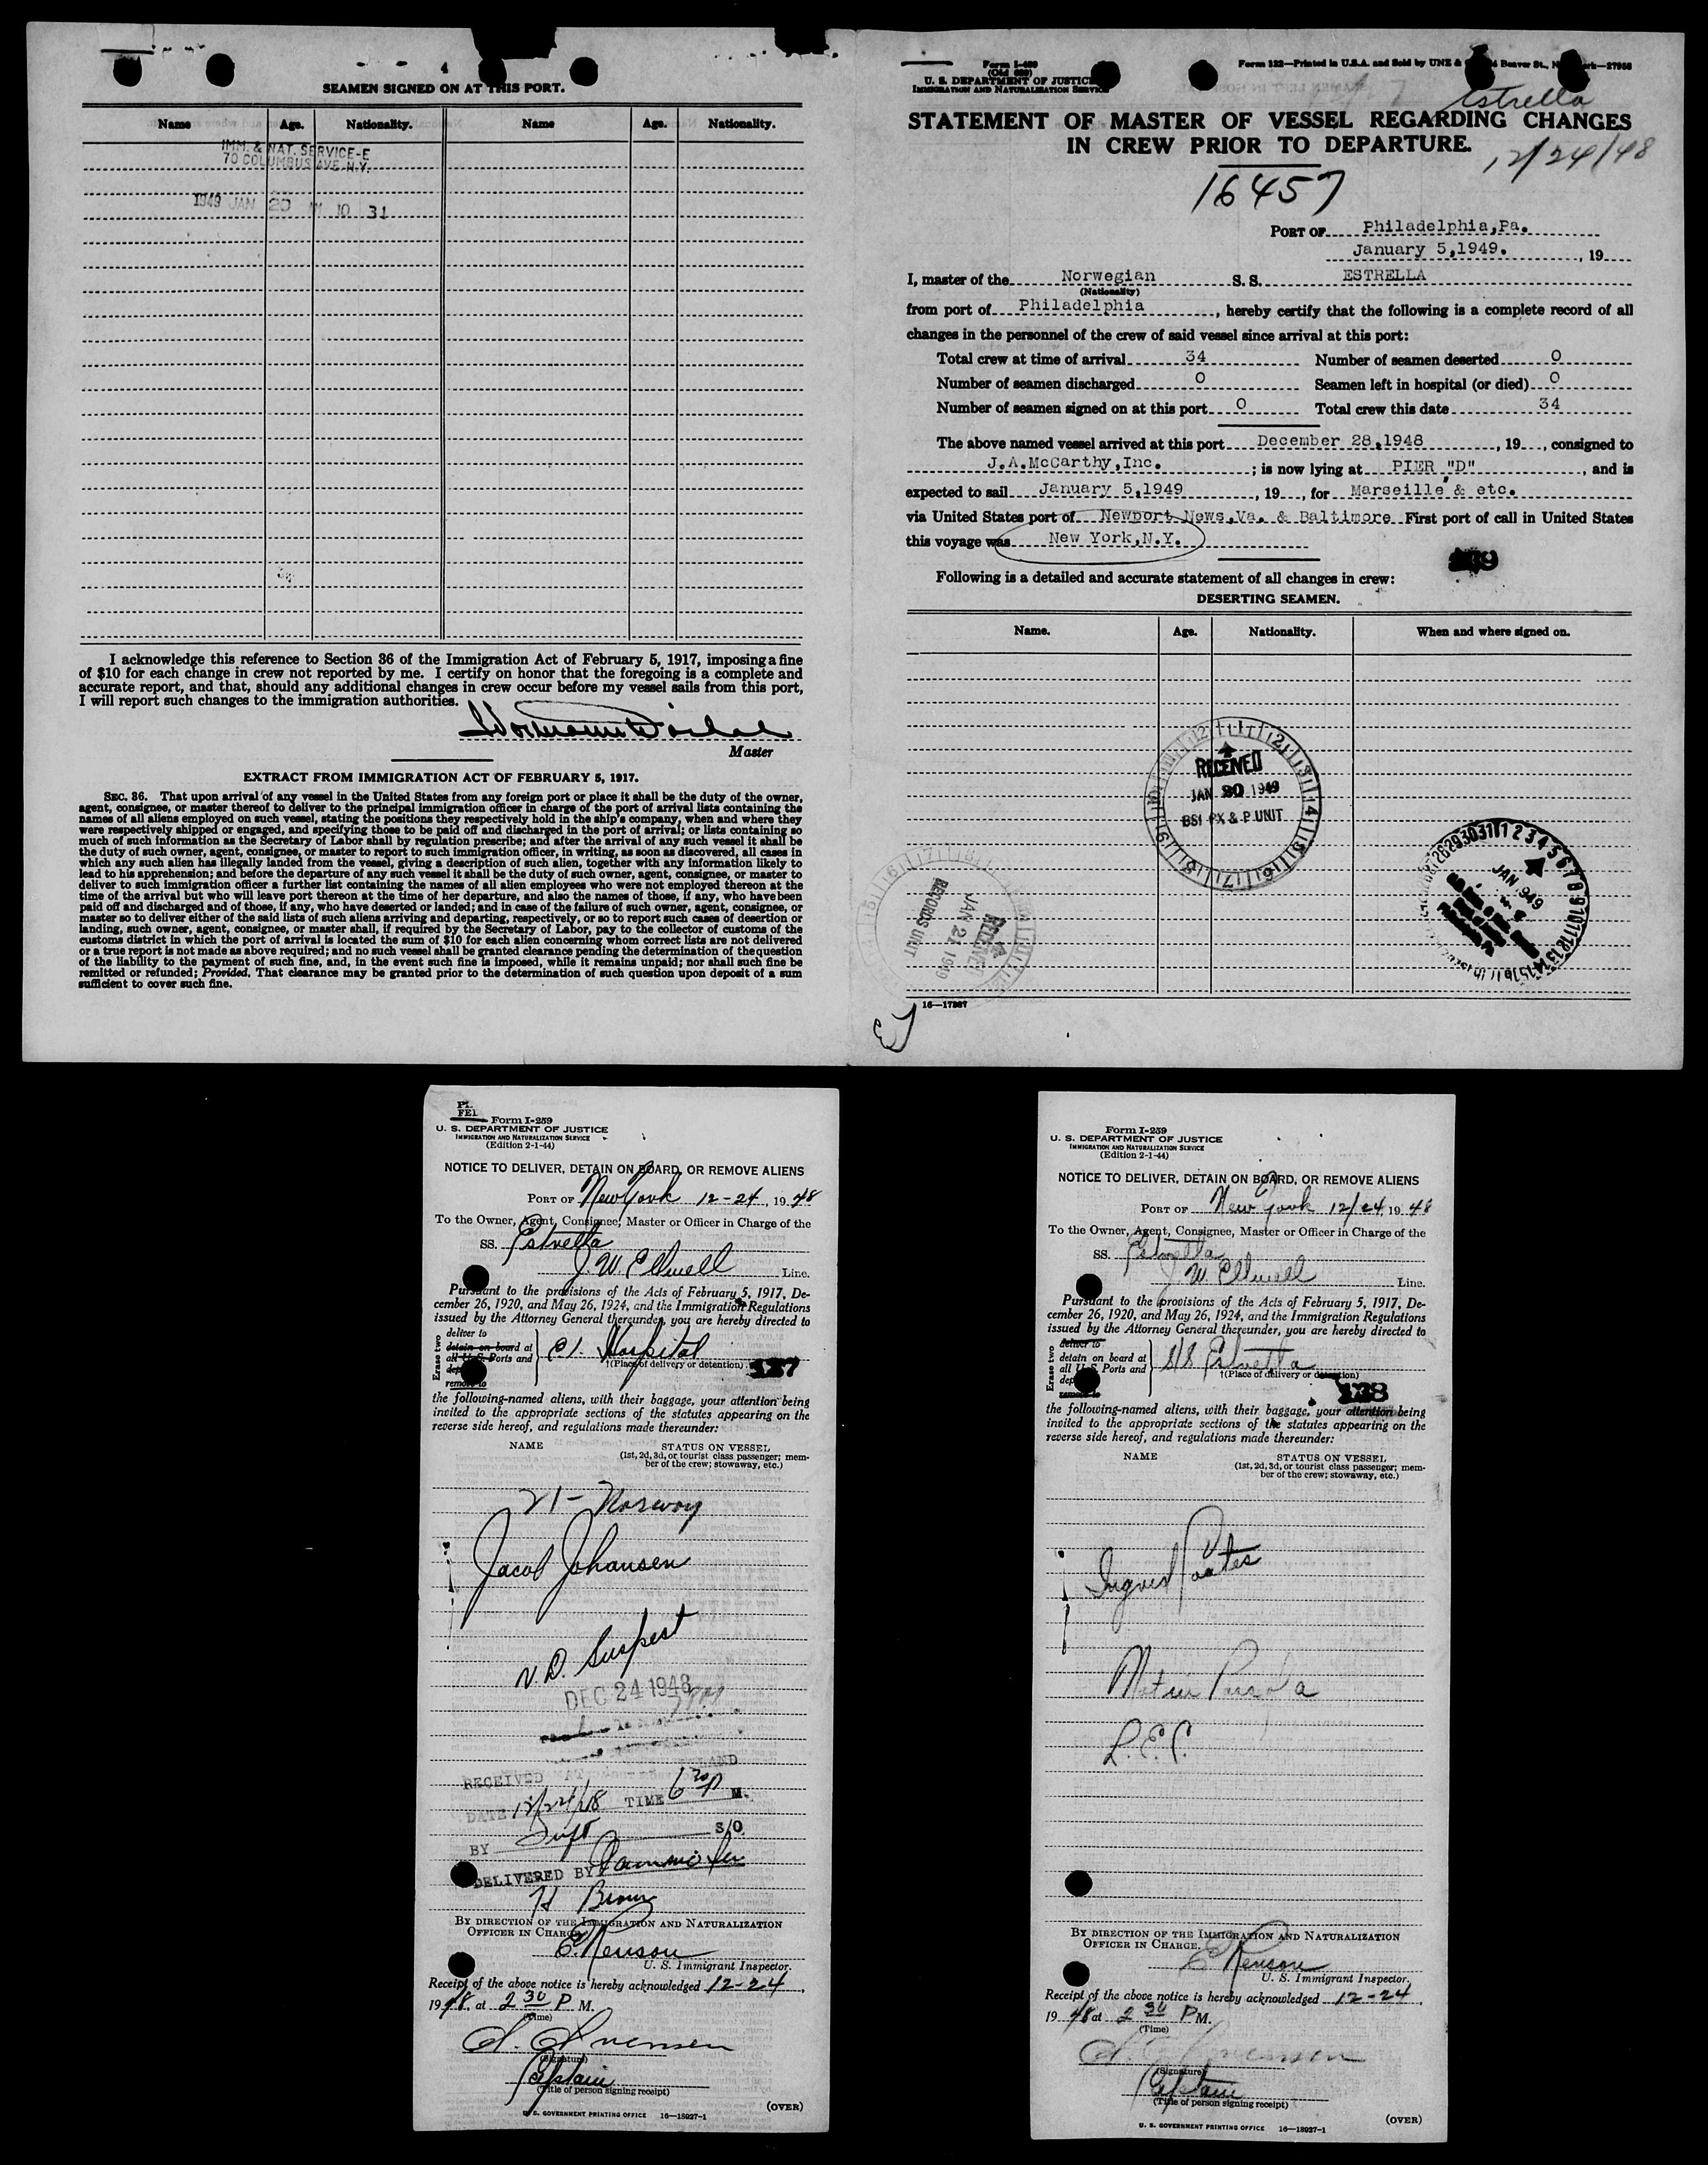 4
SEAMEN SIGNED ON AT THIS PORT.
Name Age. Nationality. Name Age. Nationality.
IMM. & NAT. SERVICE-E
70 COLUMBUS AVE. N.Y.
1949 JAN 20 10 31
I acknowledge this reference to Section 36 of the Immigration Act of February 5, 1917, imposing a fine
of $10 for each change in crew not reported by me. I certify on honor that the foregoing is a complete and
accurate report, and that, should any additional changes in crew occur before my vessel sails from this port,
I will report such changes to the immigration authorities.
Master
EXTRACT FROM IMMIGRATION ACT OF FEBRUARY 5, 1917.
SEC. 36. That upon arrival of any vessel in the United States from any foreign port or place it shall be the duty of the owner,
agent, consignee, or master thereof to deliver to the principal immigration officer in charge of the port of arrival lists containing the
names of all aliens employed on such vessel, stating the positions they respectively hold in the ship's company, when and where they
were respectively shipped or engaged, and specifying those to be paid off and discharged in the port of arrival; or lists containing so
much of such information as the Secretary of Labor shall by regulation prescribe; and after the arrival of any such vessel it shall be
the duty of such owner, agent, consignee, or master to report to such immigration officer, in writing, as soon as discovered, all cases in
which any such alien has illegally landed from the vessel, giving a description of such alien, together with any information likely to
lead to his apprehension; and before the departure of any such vessel it shall be the duty of such owner, agent, consignee, or master to
deliver to such immigration officer a further list containing the names of all alien employees who were not employed thereon at the
time of the arrival but who will leave port thereon at the time of her departure, and also the names of those, if any, who have been
paid off and discharged and of those, if any, who have deserted or landed; and in case of the failure of such owner, agent, consignee, or
master so to deliver either of the said lists of such aliens arriving and departing, respectively, or so to report such cases of desertion or
landing, such owner, agent, consignee, or master shall, if required by the Secretary of Labor, pay to the collector of customs of the
customs district in which the port of arrival is located the sum of $10 for each alien concerning whom correct lists are not delivered
or a true report is not made as above required; and no such vessel shall be granted clearance pending the determination of the question
of the liability to the payment of such fine, and, in the event such fine is imposed, while it remains unpaid; nor shall such fine be
remitted or refunded; Provided, That clearance may be granted prior to the determination of such question upon deposit of a sum
sufficient to cover such fine.
Form I-489
(Old 689)
U. S. DEPARTMENT OF JUSTICE
IMMIGRATION AND NATURALIZATION SERVICE
Form 122—Printed in U.S.A. and Sold by UNZ & Beaver St., N 27956
Estrella
STATEMENT OF MASTER OF VESSEL REGARDING CHANGES
IN CREW PRIOR TO DEPARTURE.
12/24/48
16457
PORT OF Philadelphia,Pa.
January 5,1949. , 19
I, master of the Norwegian S. S. ESTRELLA
(Nationality)
from port of Philadelphia , hereby certify that the following is a complete record of all
changes in the personnel of the crew of said vessel since arrival at this port:
Total crew at time of arrival 34 Number of seamen deserted 0
Number of seamen discharged 0 Seamen left in hospital (or died) 0
Number of seamen signed on at this port 0 Total crew this date 34
The above named vessel arrived at this port December 28,1948 , 19 , consigned to
J.A.McCarthy,Inc. ; is now lying at PIER "D" , and is
expected to sail January 5,1949 , 19 , for Marseille & etc.
via United States port of Newport News,Va. & Baltimore First port of call in United States
this voyage was New York,N.Y.
Following is a detailed and accurate statement of all changes in crew:
DESERTING SEAMEN.
Name. Age. Nationality. When and where signed on.
RECEIVED
JAN 20 1949
BSI PX & P UNIT
RECEIVED
JAN 21 1949
RECORDS UNIT
JAN 949
16—17387
Form I-259
U. S. DEPARTMENT OF JUSTICE
IMMIGRATION AND NATURALIZATION SERVICE
(Edition 2-1-44)
NOTICE TO DELIVER, DETAIN ON BOARD, OR REMOVE ALIENS
PORT OF New York 12-24, 19 48
To the Owner, Agent, Consignee, Master or Officer in Charge of the
SS. Estrella
J. W. Ellwell Line.
Pursuant to the provisions of the Acts of February 5, 1917, De-
cember 26, 1920, and May 26, 1924, and the Immigration Regulations
issued by the Attorney General thereunder, you are hereby directed to
Erase two
deliver to
detain on board at
all U.S. Ports and
remove to
EI. Hospital
†(Place of delivery or detention)
the following-named aliens, with their baggage, your attention being
invited to the appropriate sections of the statutes appearing on the
reverse side hereof, and regulations made thereunder:
NAME STATUS ON VESSEL
(1st, 2d, 3d, or tourist class passenger; mem-
ber of the crew; stowaway, etc.)
21- Norway
Jacob Johansen
V.D. Suspest
DEC 24 1948
RECEIVED AT
DATE 12/24/48 TIME 6 30 P M.
BY S/O
DELIVERED BY
H Brown
BY DIRECTION OF THE IMMIGRATION AND NATURALIZATION
OFFICER IN CHARGE.
E. Renson
U. S. Immigrant Inspector.
Receipt of the above notice is hereby acknowledged 12-24,
19 48 at 2 30 P M.
(Time)
(Signature)
Captain
(Title of person signing receipt)
(OVER)
U. S. GOVERNMENT PRINTING OFFICE 16—18927-1
Form I-259
U. S. DEPARTMENT OF JUSTICE
IMMIGRATION AND NATURALIZATION SERVICE
(Edition 2-1-44)
NOTICE TO DELIVER, DETAIN ON BOARD, OR REMOVE ALIENS
PORT OF New York 12/24, 19 48
To the Owner, Agent, Consignee, Master or Officer in Charge of the
SS. Estrella
J W. Ellwell Line.
Pursuant to the provisions of the Acts of February 5, 1917, De-
cember 26, 1920, and May 26, 1924, and the Immigration Regulations
issued by the Attorney General thereunder, you are hereby directed to
Erase two
deliver to
detain on board at
all U.S. Ports and
remove to
S/S Estrella
†(Place of delivery or detention)
the following-named aliens, with their baggage, your attention being
invited to the appropriate sections of the statutes appearing on the
reverse side hereof, and regulations made thereunder:
NAME STATUS ON VESSEL
(1st, 2d, 3d, or tourist class passenger; mem-
ber of the crew; stowaway, etc.)
BY DIRECTION OF THE IMMIGRATION AND NATURALIZATION
OFFICER IN CHARGE.
E Renson
U. S. Immigrant Inspector.
Receipt of the above notice is hereby acknowledged 12-24,
19 48 at 2 30 P M.
(Time)
(Signature)
Captain
(Title of person signing receipt)
(OVER)
U. S. GOVERNMENT PRINTING OFFICE 16—18927-1